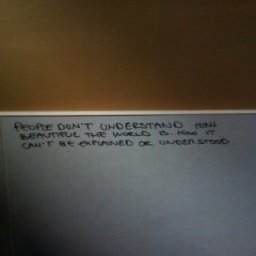 PEOPLE DON'T UNDERSTAND HOW
BEAUTIFUL THE WORLD IS. HOW IT
CAN'T BE EXPLAINED OR UNDERSTOOD.